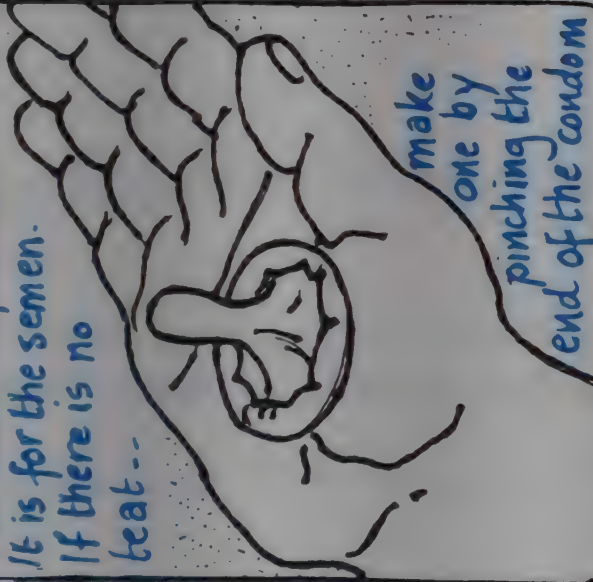 It is for the semen.
If there is no
teat--
make
one by
pinching the
end of the condom